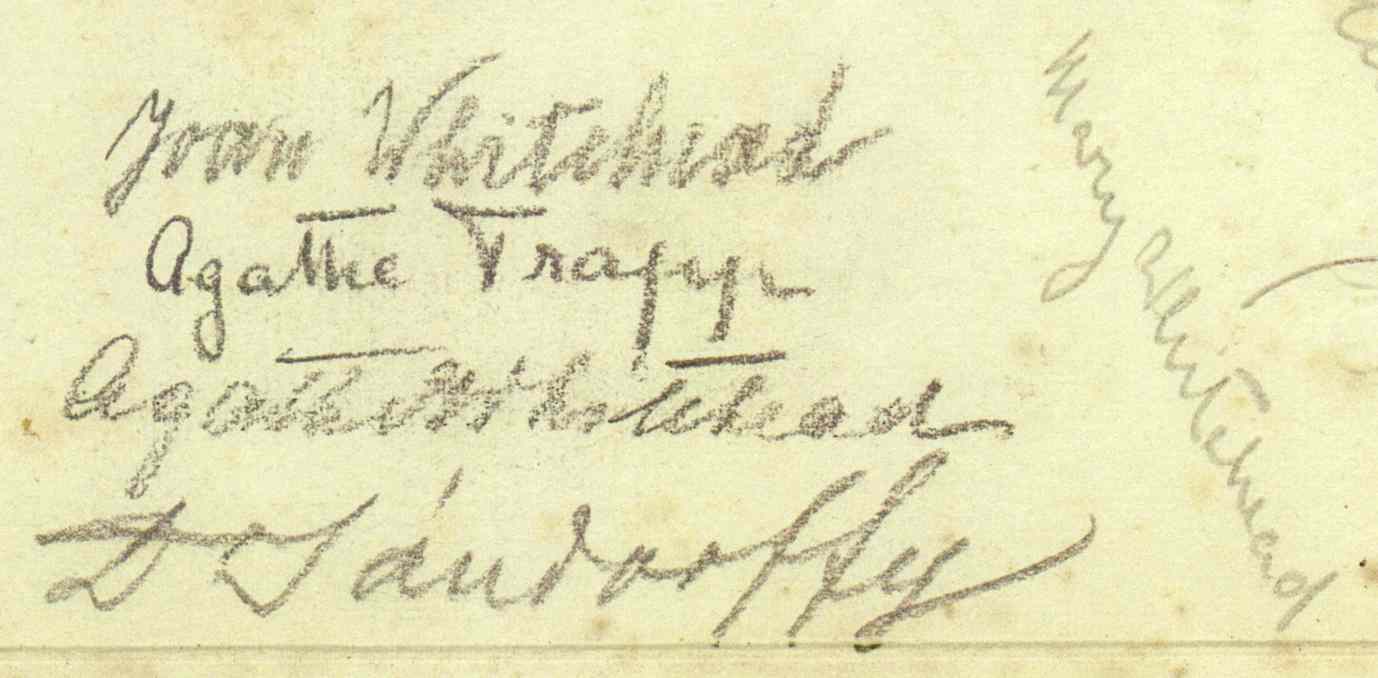 Joan Whitehead
Agathe Trapp
Agathe Whitehead
D Sándorffy
Mary Whitehead